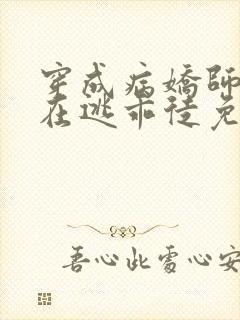 穿成病嬌師
在逃乖徒免
吾心此處心安